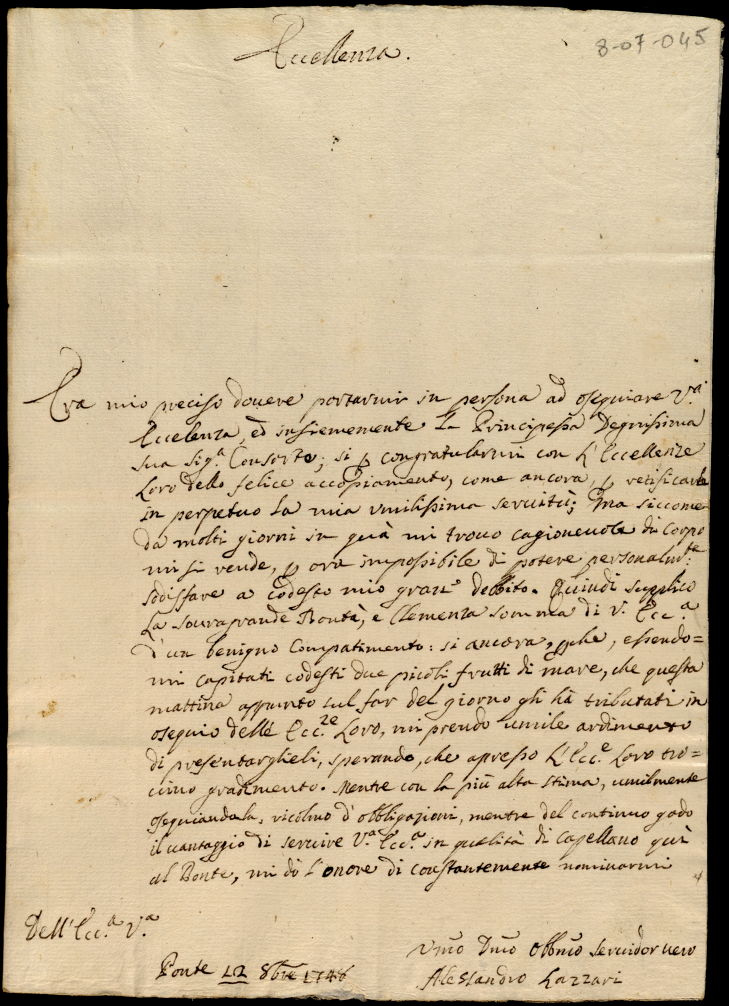 8-07-045
Eccellenza.
Era mio preciso douere portarmi in persona ad osequiare V.a
Eccelenza, ed insiememente la Principessa Degnissima
sua Sig.a Consorte; si p congratularmi con L'Eccellenze
Loro dello felice accopiamento, come ancora, p retificarle
in perpetuo la mia vmilissima seruitù; Ma siccome
da molti giorni in quà mi trouo cagioneuole di Corpo
mi si rende, p ora impossibile di potere personalm:te
sodisfare a codesto mio gran debbito. Quindi supplico
La souragrande Bontà, e Clemenza somma di V. Ecc.a
d'un benigno Compatimento: si ancora, pche, essendo=
mi capitati codesti due picoli frutti di mare, che questa
mattina appunto sul far del giorno gli hà tributati in
osequio delle Ecc.ze Loro, mi prendo umile ardimento
di presentarglieli, sperando, che apresso L'Ecc.e Loro tro=
uino gradimento. Mentre con la più alta stima, umilmente
osequiandola, ricolmo d'obbligazioni, mentre del continuo godo
il uantaggio di seruire V.a Ecc.a in qualità di capellano quì
al Ponte, mi dò l'onore di constantemente nominarmi
Dell'Ecc.a V.a
Vmo Dmo Obbmo seruidor uero
Ponte 12 8bre 1746
Alessandro Lazzari